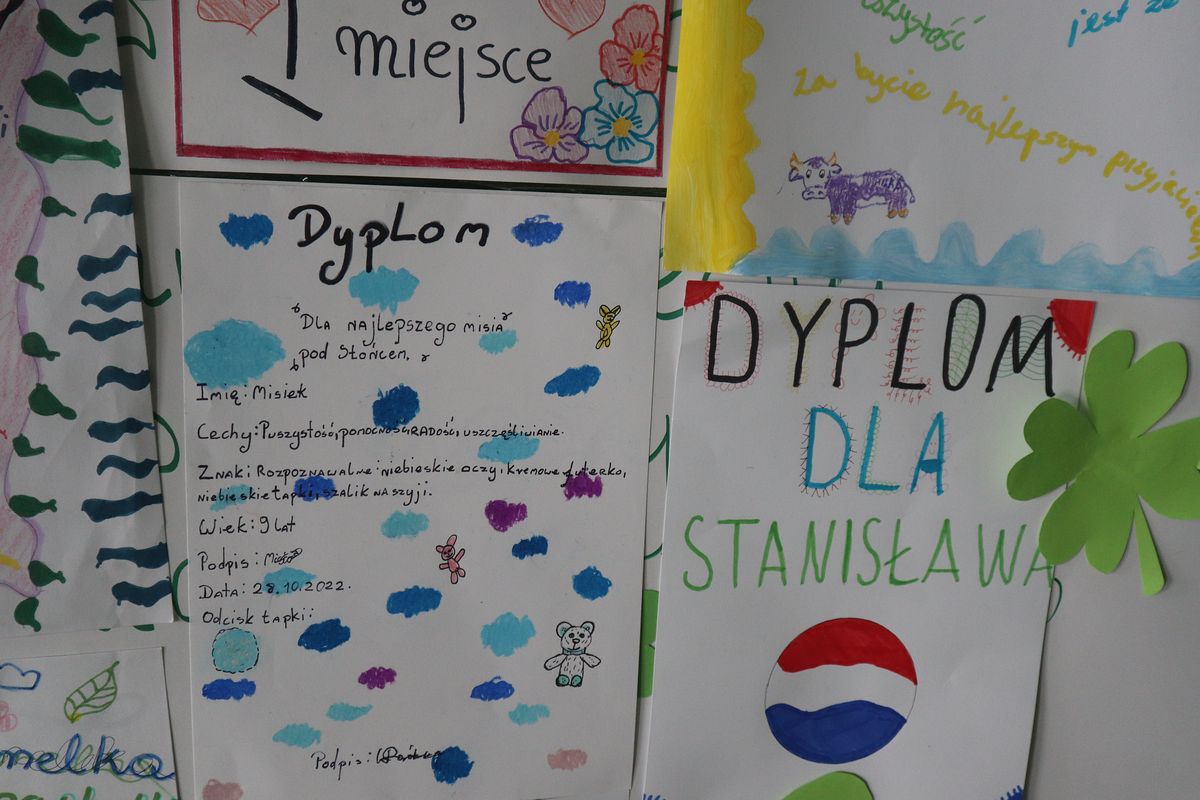 1 miejsce
zystość
jest że
za bycie najlepszym
Dyplom
Dla najlepszego misia
pod słońcem.
Imię: Misiek
Cechy: Puszystość, pomocność, radość, uszczęśliwianie.
Znaki Rozpoznawalne: niebieskie oczy, kremowe futerko,
niebieskie tapki, szalik na szyji.
Wiek: 9 lat
Podpis:
Data: 28.10.2022.
Odcisk tapki:
Podpis:
DYPLOM
DLA
STANISŁAWA
melka